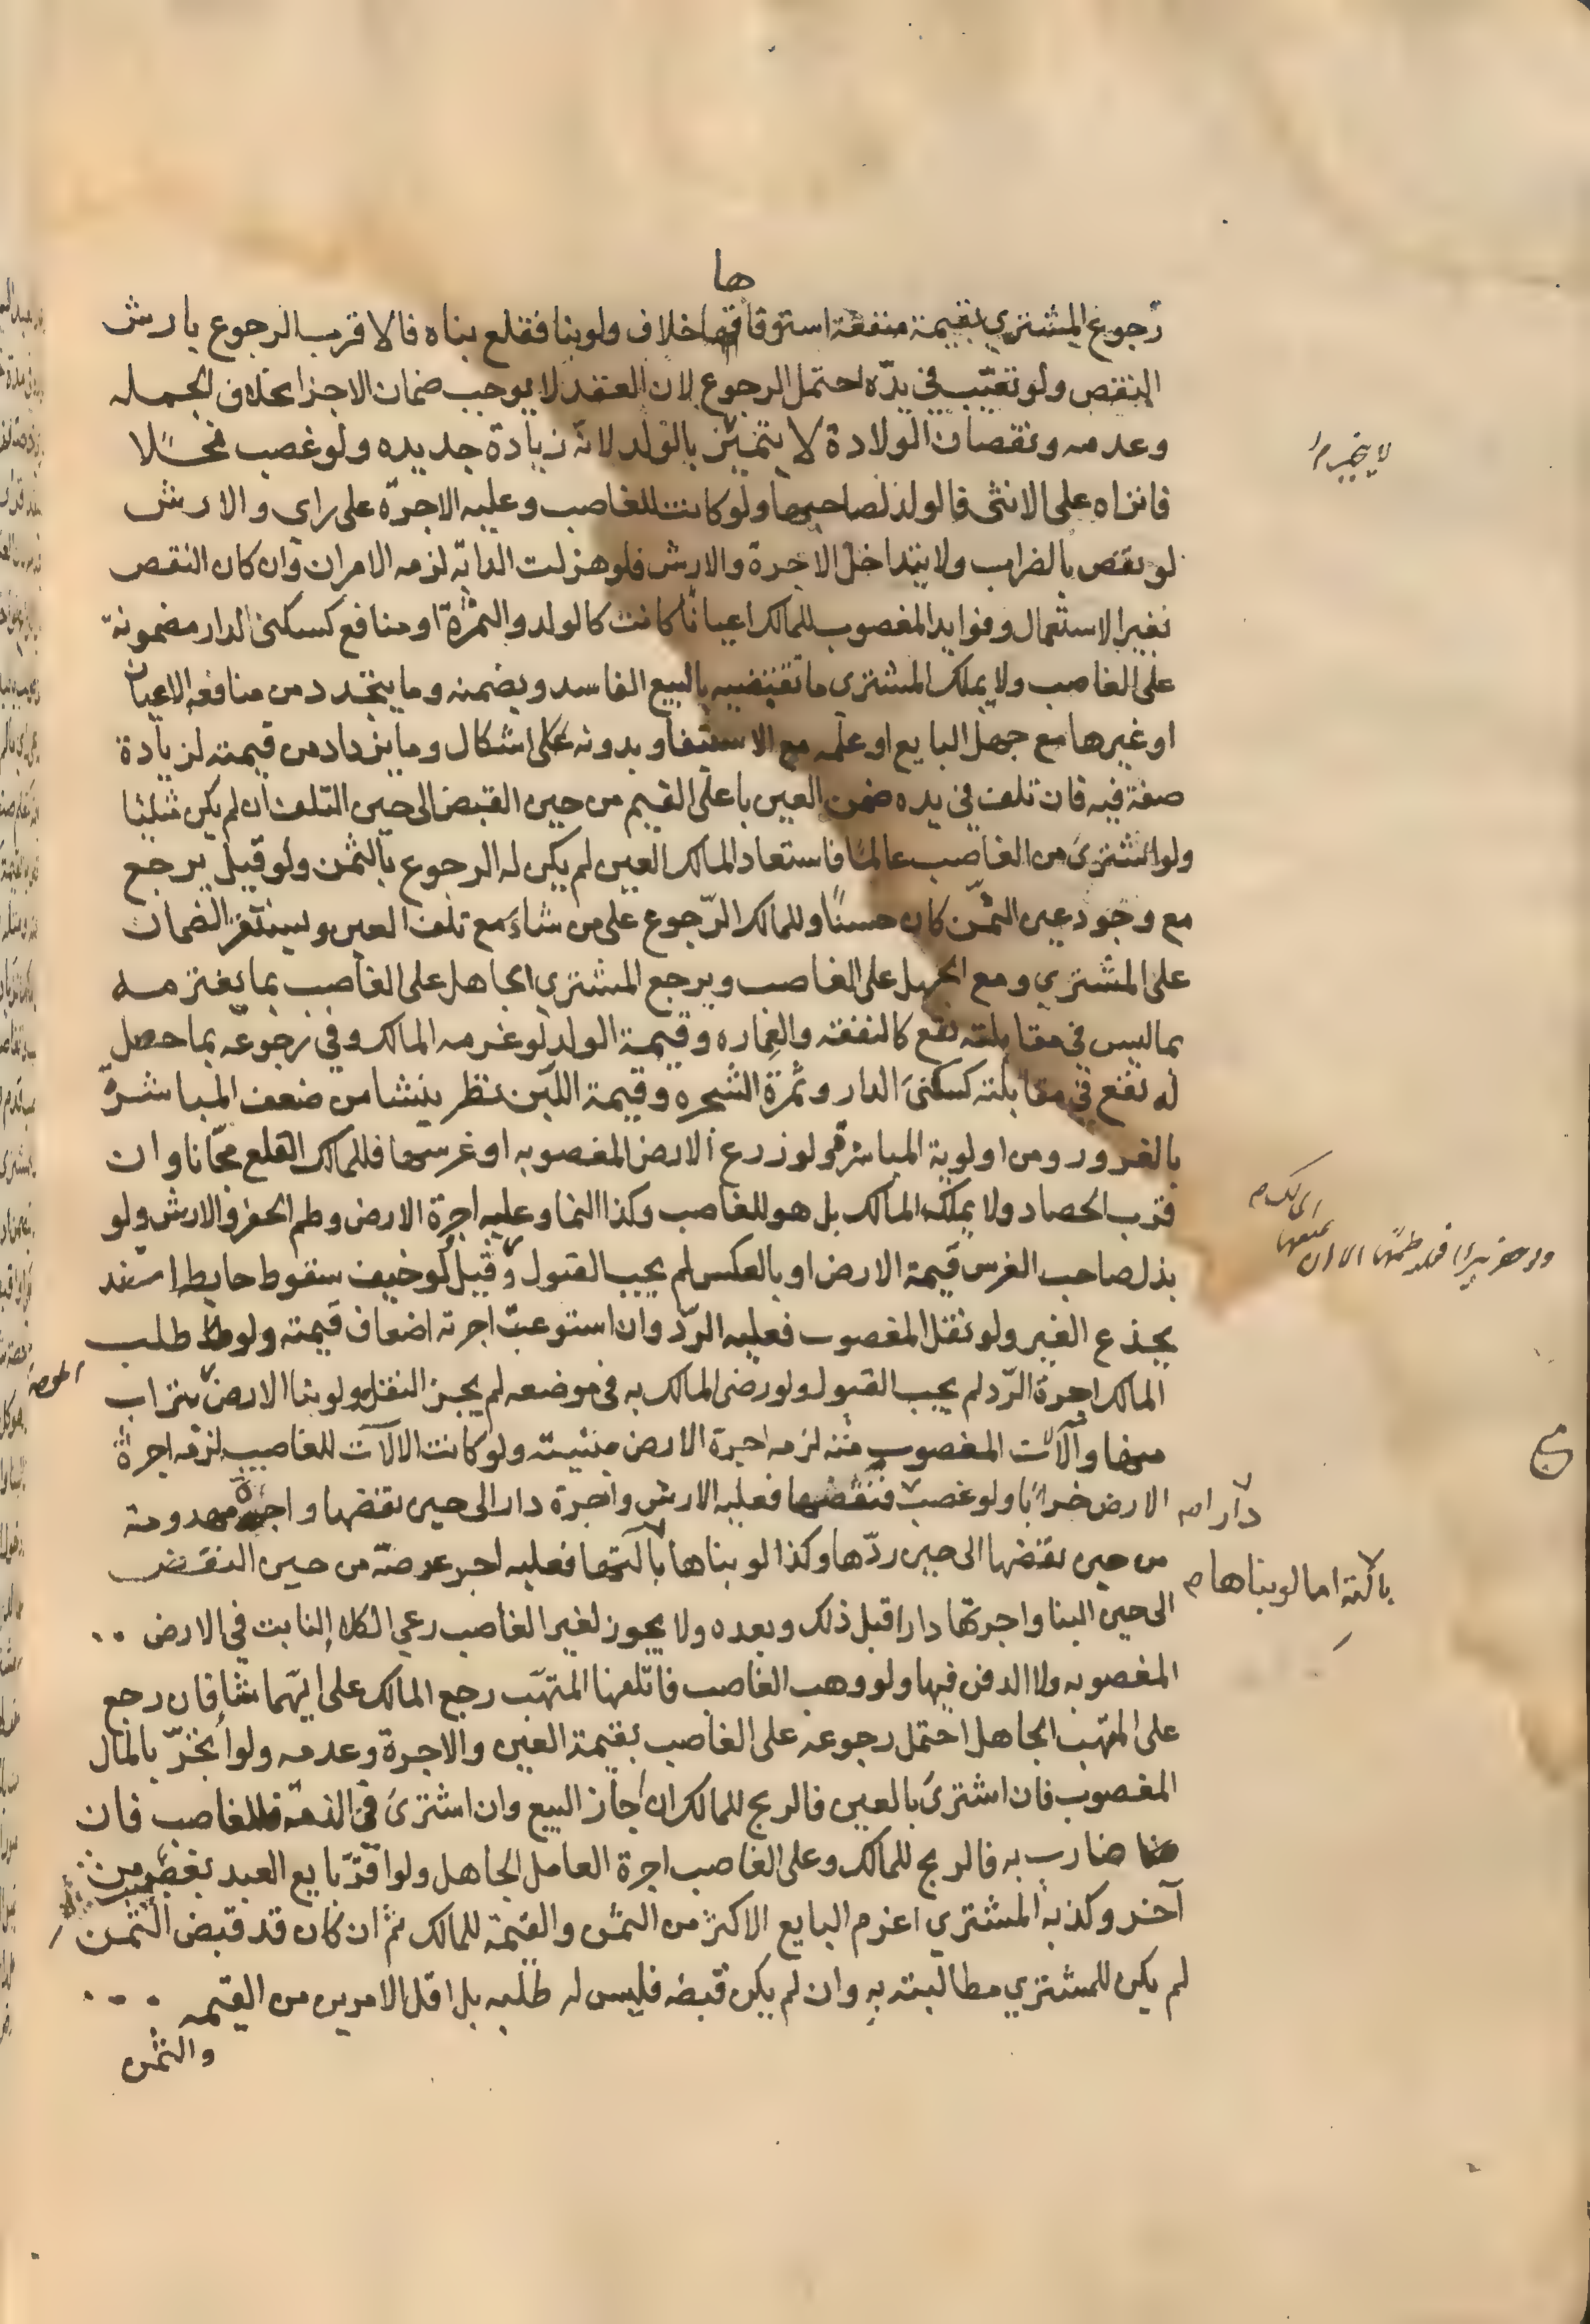 ها
رجوع المشتري بقيمة منفعة استوفاها خلاف ولو بنا فقلع بناه فالاقرب الرجوع بارش
النقص ولو تعيّب في يده احتمل الرجوع لان العقد لا يوجب ضمان الاجزا بخلاف الجمله
وعدمه ونقصان الولادة لا يتميّز بالولد لانه زيادة جديده ولو غصب فحلًا
لا ينجبر
فانزاه على الانثى فالولد لصاحبها ولو كانت للغاصب وعليه الاجرة على راي والارش
لو نقص بالضراب ولا يتداخل الاجرة والارش فلو هزلت الدابّه لزمه الامران وان كان النقص
بغير الاستعمال وفوايد المغصوب للمالك اعيانًا كانت كالولد والثمرة او منافع كسكنى الدار مضمونة
على الغاصب ولا يملك المشترى ما تقتضيه بالبيع الفاسد ويضمنه وما يتجدد من منافعه الاعيان
او غيرها مع جهل البايع او علمه مع الاستيفا وبدونه على اشكال وما يزداد من قيمته لزيادة
صفة فيه فان تلف في يده ضمن العين باعلى القيم من حين القبض الى حين التلف ان لم يكن مثليا
ولو اشترى من الغاصب عالمًا فاستعاد المالك العين لم يكن له الرجوع بالثمن ولو قيل يرجع
مع وجود عين الثمن كان حسنًا وللمالك الرّجوع على من شاء مع تلف العين ويستقر الضمان
على المشتري ومع الجهل على الغاصب ويرجع المشتري الجاهل على الغاصب بما يغترمه
مما ليس في مقابلته نفع كالنفقه والعماره وقيمة الولد لو غرمه المالك وفي رجوعه بما حصل
له نفع في مقابلته كسكنى الدار وثمرة الشجره وقيمة اللبن نظر ينشا من ضعف المباشرة
بالغرور ومن اولوية المباشرة ولو زرع الارض المغصوبه او غرسها فللمالك القلع مجّانا وان
قرب الحصاد ولا يملكه المالك بل هو للغاصب وكذا النما وعليه اجرة الارض وطم الحفر والارش ولو
ولو حفر بيرا فله طمّها الا ان يمنعها
المالك م
بذل صاحب الغرس قيمة الارض او بالعكس لم يجب القبول وقيل لو خيف سقوط حايط اسند
بجذع الغير ولو نقل المغصوب فعليه الردّ وان استوعبت اجرته اضعاف قيمته ولو طلب
المالك اجرة الرّد لم يجب القبول ولو رضى المالك به في موضعه لم يجز النقل ولو بنا الارض بتراب
منها وآلات المغصوب منه لزمه اجرة الارض مبنية ولو كانت الالآت للغاصب لزمه اجرة
الارض خرابًا ولو غصب فنقضها فعليه الارش واجرة دار الى حين نقضها واجرة مهدومة
دارا م
من حين نقضها الى حين ردّها وكذا لو بناها بآلتها فعليه اجر عرصة من حين النقض
بالته اما لو بناها م
الى حين البنا واجرتها دارا قبل ذلك وبعده ولا يجوز لغير الغاصب رعي الكلا النابت في الارض
المغصوبه ولا الدفن فيها ولو وهب الغاصب فاتلفها المتهب رجع المالك على ايّهما شا فان رجع
على المتهب الجاهل احتمل رجوعه على الغاصب بقيمة العين والاجرة وعدمه ولو اتجر بالمال
المغصوب فان اشترى بالعين فالربح للمالك ان اجاز البيع وان اشترى في الذمة فللغاصب فان
ضارب به فالربح للمالك وعلى الغاصب اجرة العامل الجاهل ولو اقرّ بايع العبد بغصبه من
آخر وكذبه المشتري اغرم البايع الاكثر من الثمن والقيمة للمالك ثم ان كان قد قبض الثمن
لم يكن للمشتري مطالبته به وان لم يكن قبضه فليس له طلبه بل اقل الامرين من القيمه
والثمن